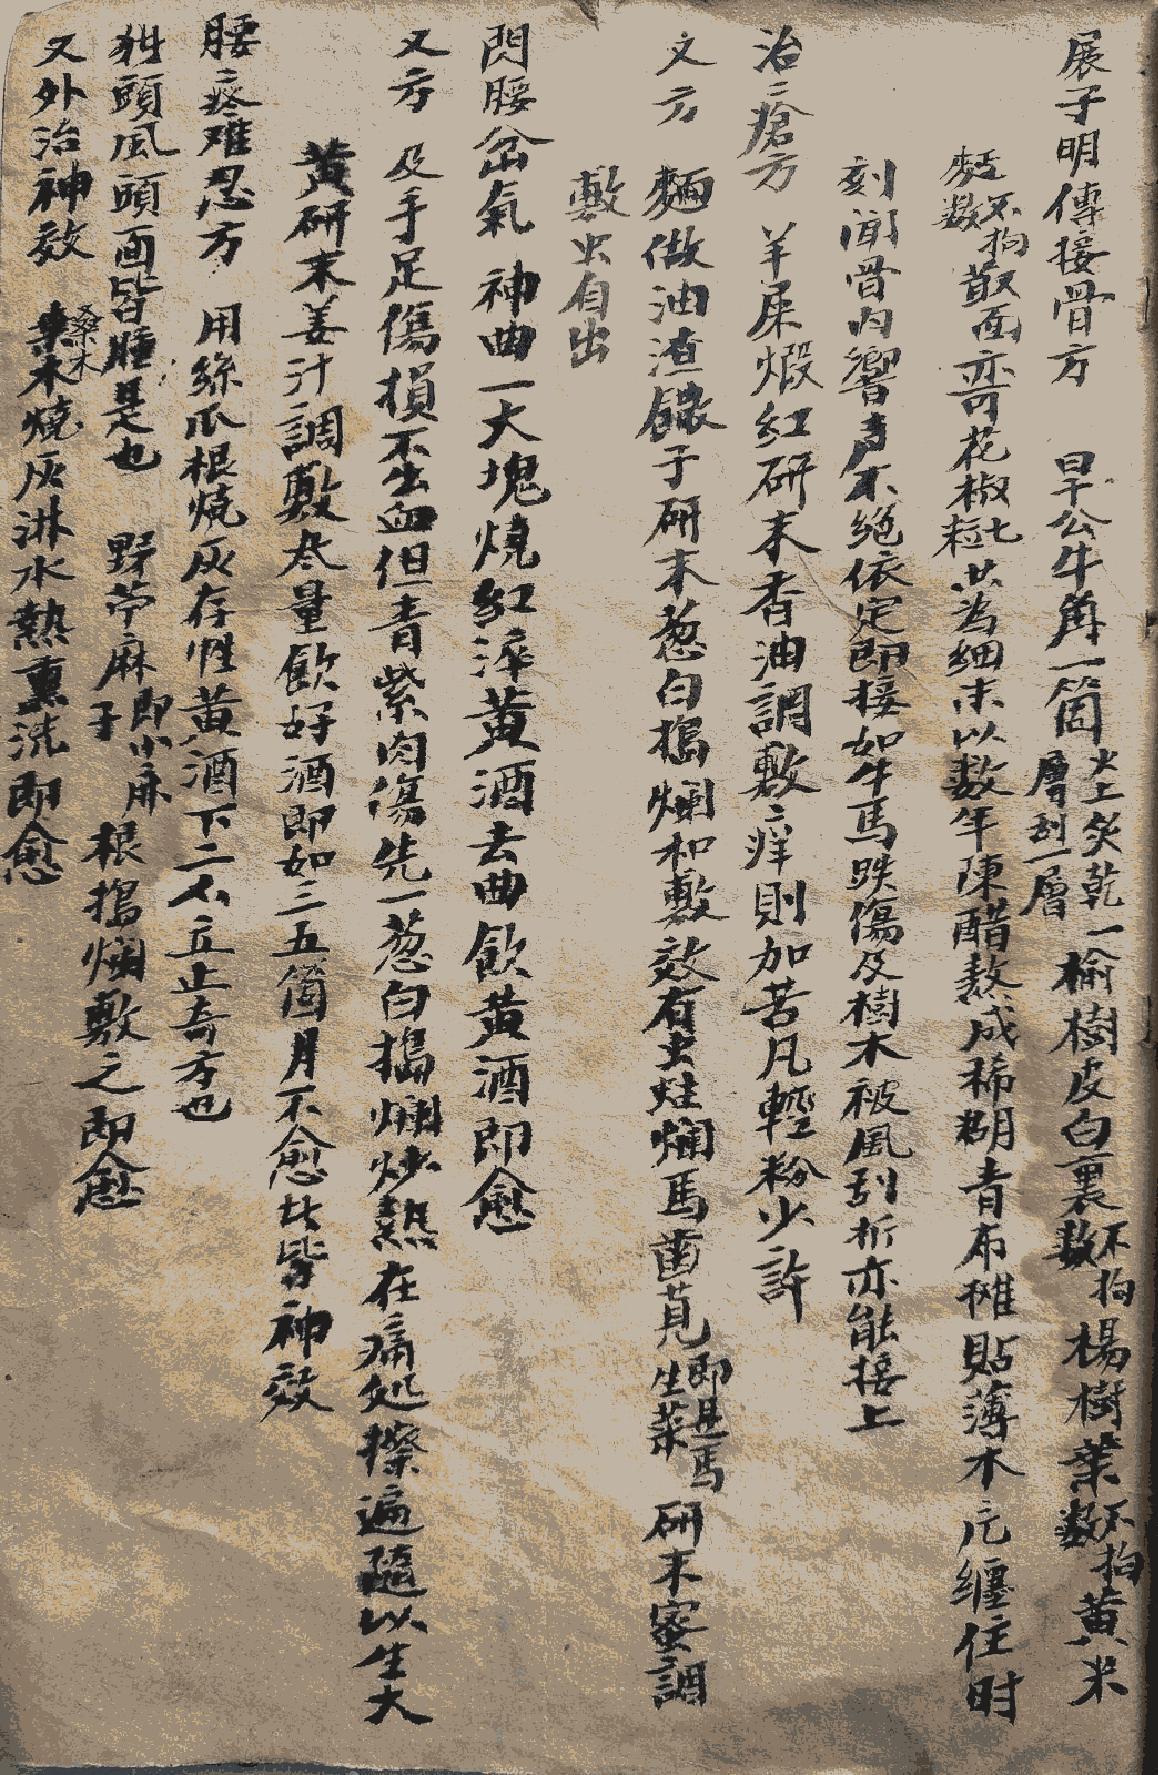 展子明傳接骨方　旱公牛角一箇火上炙乾一層刮一層榆樹皮白裏不拘數楊樹葉不拘數黃米
麪不拘數散面亦可花椒七粒共為細末以數年陳醋熬成稀糊青布摊貼薄木片纏住时
刻闻骨内響声不絕依定即接如牛馬跌傷及樹木被風刮折亦能接上
治〻瘡方　羊屎煅紅研末香油調敷〻痒則加苦凡輕粉少許
又方　麵做油渣餜子研末葱白搗爛和敷效有虫蛀爛馬齒莧即是馬生菜研末蜜調
敷虫自出
閃腰岔氣　神曲一大塊燒紅淬黃酒去曲飲黃酒即愈
又方　及手足傷損不出血但青紫肉傷先一葱白搗爛炒熱在痛処擦遍隨以生大
黃研末姜汁調敷尽量飲好酒即如三五箇月不愈比皆神效
腰〻疼难忍方　用絲瓜根燒灰存性黃酒下二个立止奇方也
頭風頭面皆腫是也　野苧麻即小麻子根搗爛敷之即愈
又外治神效　桑木桑木燒灰淋水熱熏洗即愈